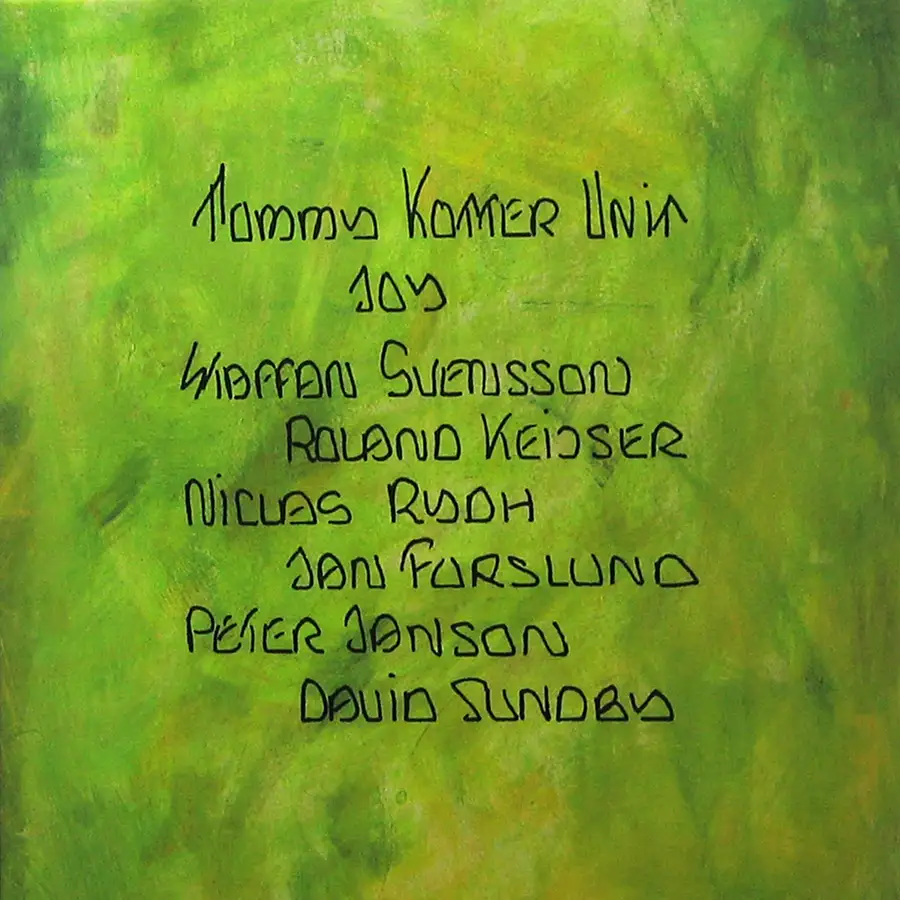 TOMMY KOTTER UNIT
JOY
STAFFAN SVENSSON
ROLAND KEIJSER
NICLAS RYDH
JAN FORSLUND
PETER JANSON
DAVID SUNDBY